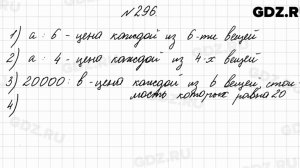 №296
GDZ.RU
1) a : 6 - цена каждой из 6-ти вещей
2) a : 4 - цена каждой из 4-х вещей
3) 20000 : в - цена каждой из b вещей, стои
мость которых равна 20
4)